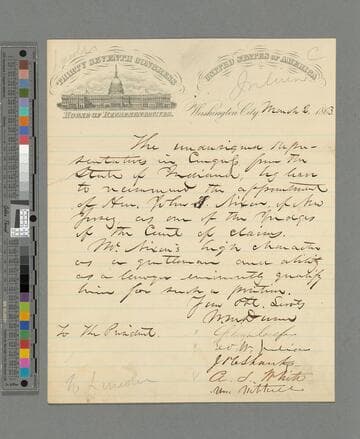 THIRTY SEVENTH CONGRESS
UNITED STATES OF AMERICA
HOUSE OF REPRESENTATIVES.
Washington City, March 2, 1863
The undersigned Repre-
sentatives in Congress from the
State of Indiana, beg leave
to recommend the appointment
of Hon. John T. Nixon, of New
Jersey, as one of the Judges
of the Court of Claims.
Mr Nixon's high character
as a gentleman and ability
as a lawyer eminently qualify
him for such a position.
Your Obt. Servts
W. M. Dunn
To The President.
Geo W. Julian
J P C Shanks
A. S. White
Wm. Mitchell
To Lincoln